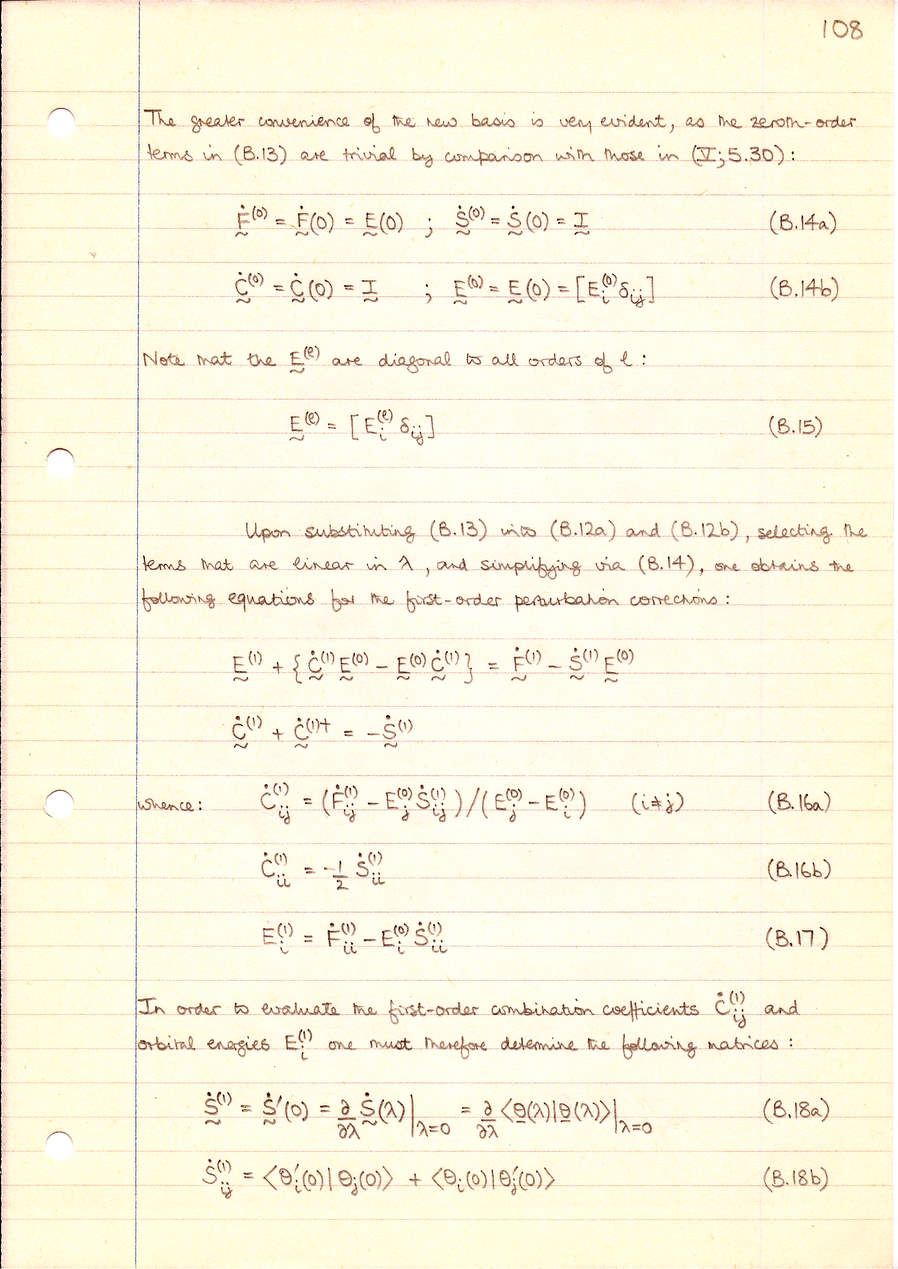 108
The greater convenience of the new basis is very evident, as the zeroth-order
terms in (B.13) are trivial by comparison with those in (V; 5.30) :
Ḟ̰⁽⁰⁾ = Ḟ̰(0) = Ḛ(0) ; Ṡ̰⁽⁰⁾ = Ṡ̰(0) = Ḭ (B.14a)
Ċ̰⁽⁰⁾ = Ċ̰(0) = Ḭ ; Ḛ⁽⁰⁾ = Ḛ(0) = [E_i⁽⁰⁾ δ_ij] (B.14b)
Note that the Ḛ⁽ˡ⁾ are diagonal to all orders of l :
Ḛ⁽ˡ⁾ = [E_i⁽ˡ⁾ δ_ij] (B.15)
Upon substituting (B.13) into (B.12a) and (B.12b), selecting the
terms that are linear in λ, and simplifying via (B.14), one obtains the
following equations for the first-order perturbation corrections :
Ḛ⁽¹⁾ + {Ċ̰⁽¹⁾ Ḛ⁽⁰⁾ − Ḛ⁽⁰⁾ Ċ̰⁽¹⁾} = Ḟ̰⁽¹⁾ − Ṡ̰⁽¹⁾ Ḛ⁽⁰⁾
Ċ̰⁽¹⁾ + Ċ̰⁽¹⁾† = −Ṡ̰⁽¹⁾
whence : Ċ_ij⁽¹⁾ = (Ḟ_ij⁽¹⁾ − E_j⁽⁰⁾ Ṡ_ij⁽¹⁾) / (E_j⁽⁰⁾ − E_i⁽⁰⁾) (i ≠ j) (B.16a)
Ċ_ii⁽¹⁾ = −1/2 Ṡ_ii⁽¹⁾ (B.16b)
E_i⁽¹⁾ = Ḟ_ii⁽¹⁾ − E_i⁽⁰⁾ Ṡ_ii⁽¹⁾ (B.17)
In order to evaluate the first-order combination coefficients Ċ_ij⁽¹⁾ and
orbital energies E_i⁽¹⁾ one must therefore determine the following matrices :
Ṡ̰⁽¹⁾ = Ṡ̰′(0) = ∂/∂λ Ṡ̰(λ)|_λ=0 = ∂/∂λ ⟨θ̲(λ)|θ̲(λ)⟩|_λ=0 (B.18a)
Ṡ_ij⁽¹⁾ = ⟨θ_i′(0)|θ_j(0)⟩ + ⟨θ_i(0)|θ_j′(0)⟩ (B.18b)